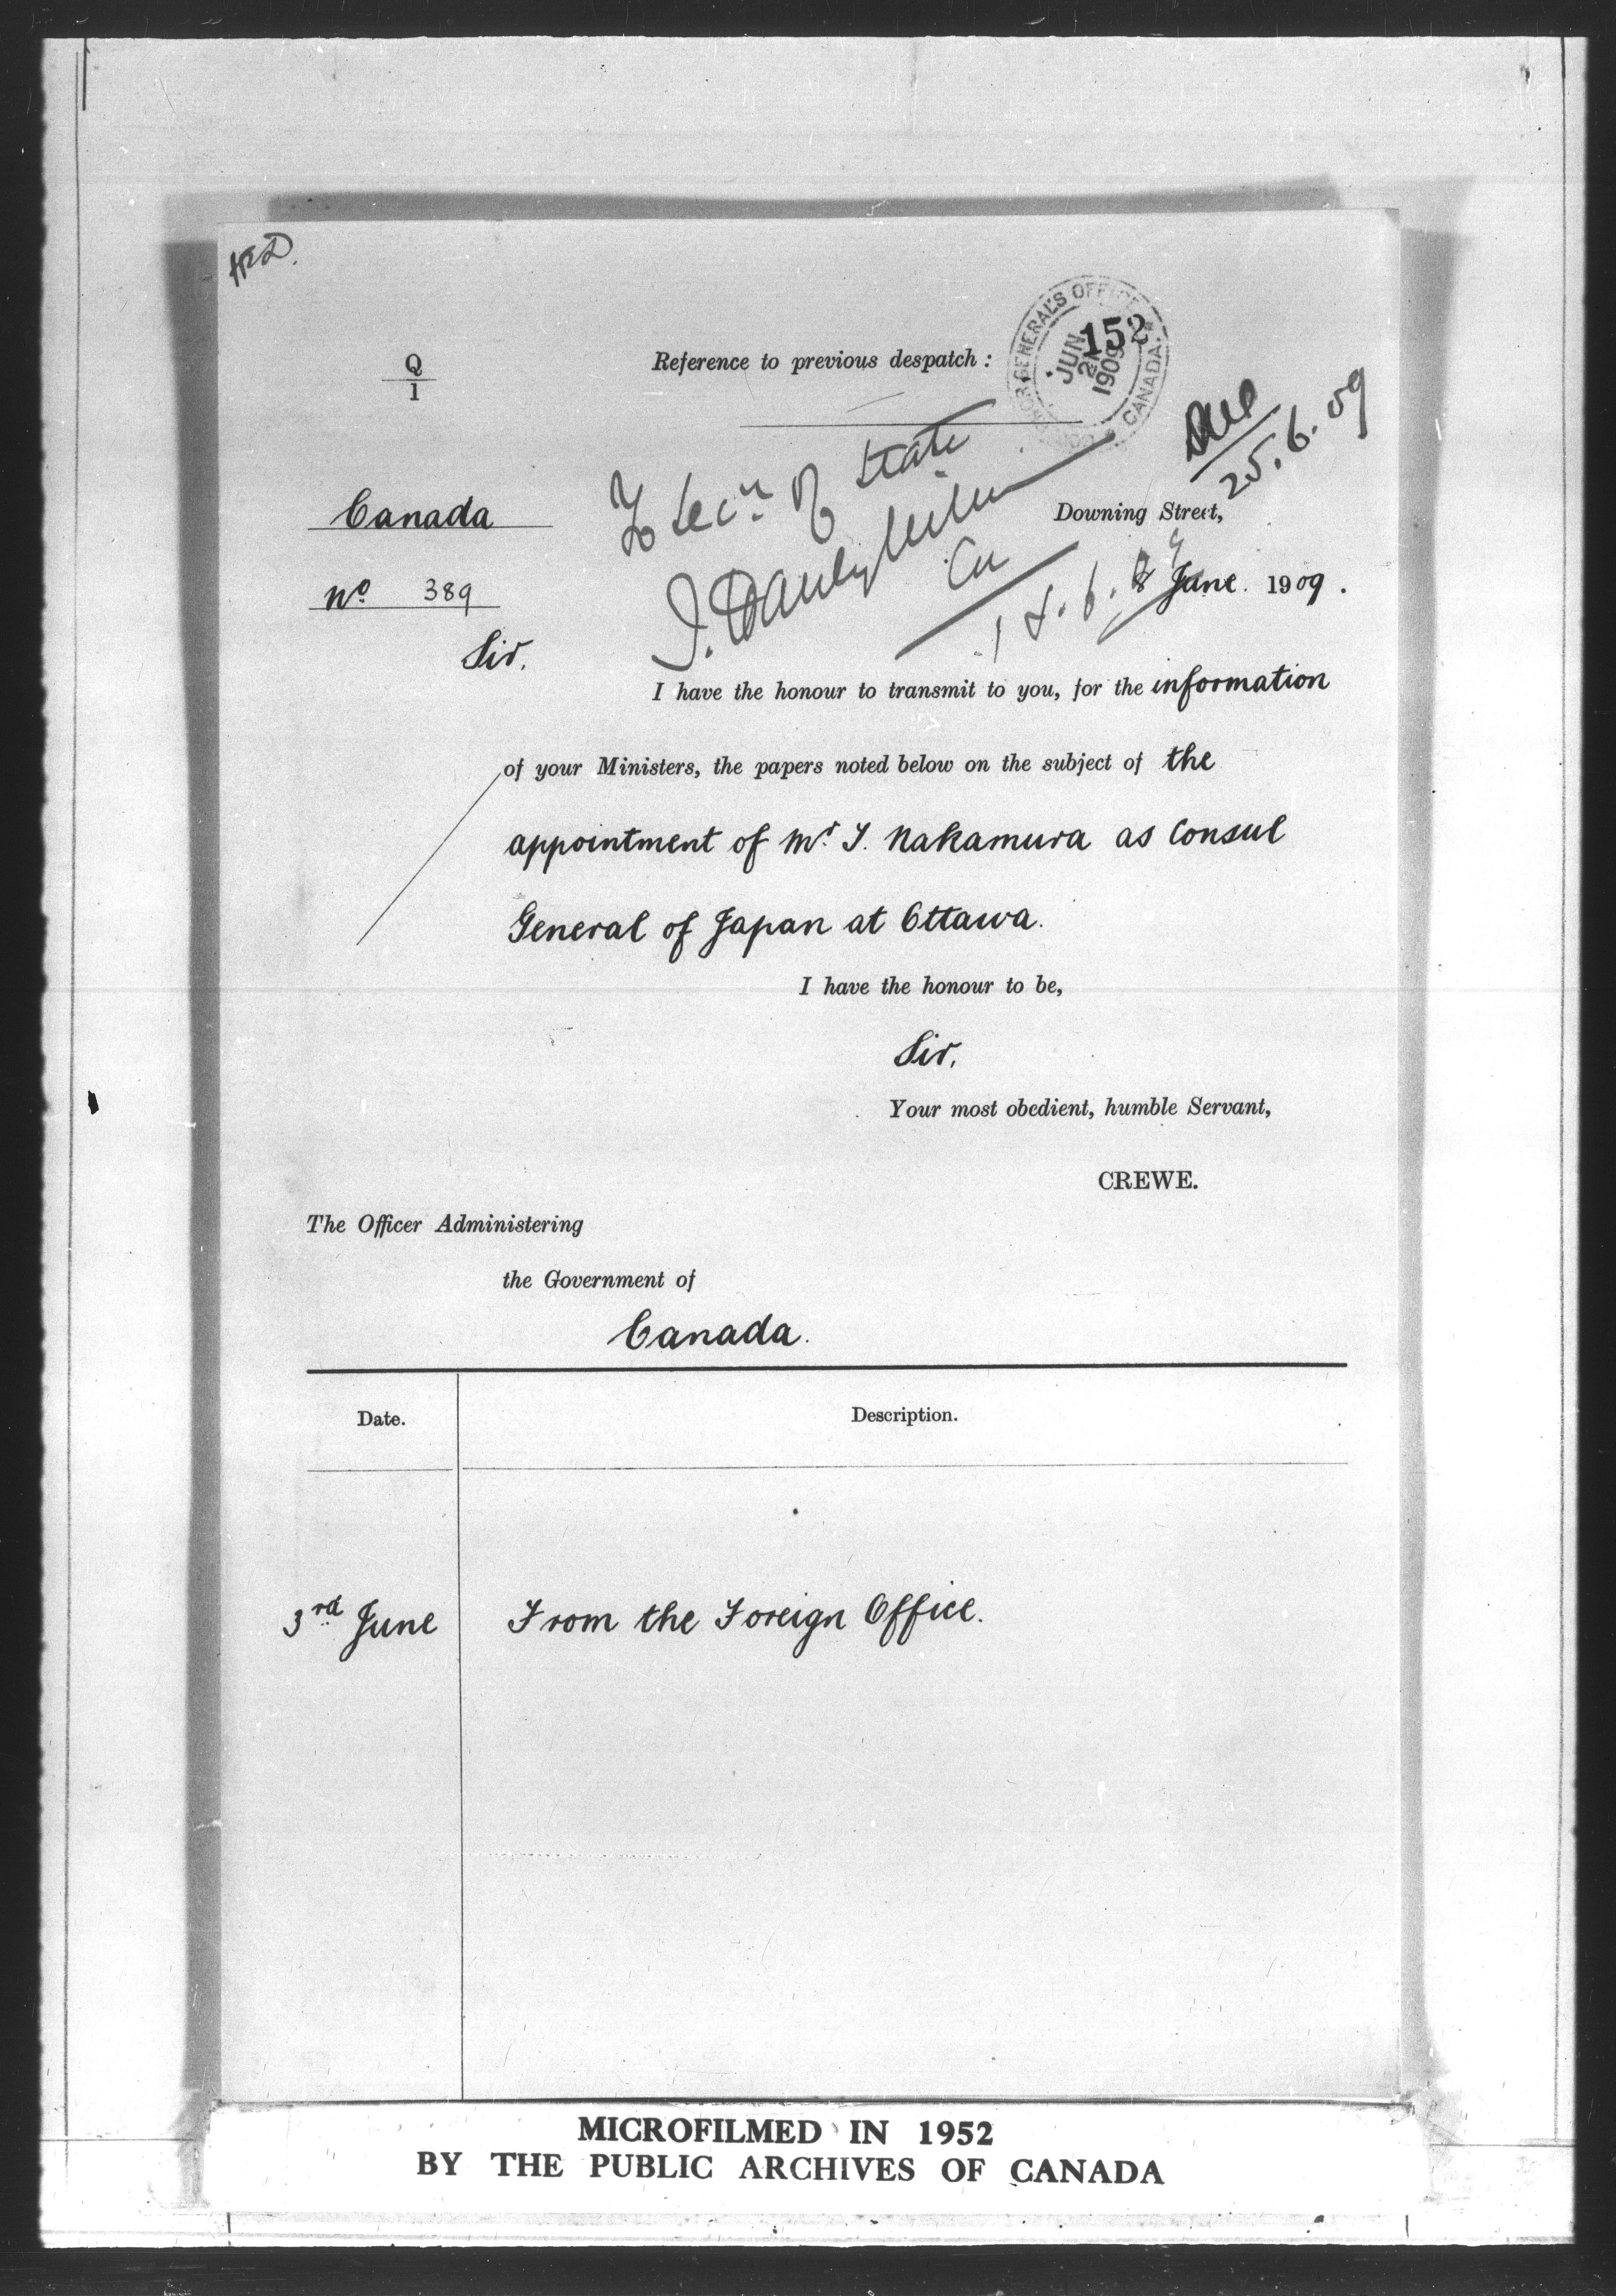 Q
1
Reference to previous despatch :
GENERAL'S OFFICE
JUN 21 1909
CANADA
152
25.6.09
To Secy. of State
Canada
Downing Street,
No. 389
June 1909.
Sir,
I have the honour to transmit to you, for the information
of your Ministers, the papers noted below on the subject of the
appointment of Mr. T. Nakamura as Consul
General of Japan at Ottawa.
I have the honour to be,
Sir,
Your most obedient, humble Servant,
CREWE.
The Officer Administering
the Government of
Canada.
Date.
Description.
3rd June
From the Foreign Office.
MICROFILMED IN 1952
BY THE PUBLIC ARCHIVES OF CANADA